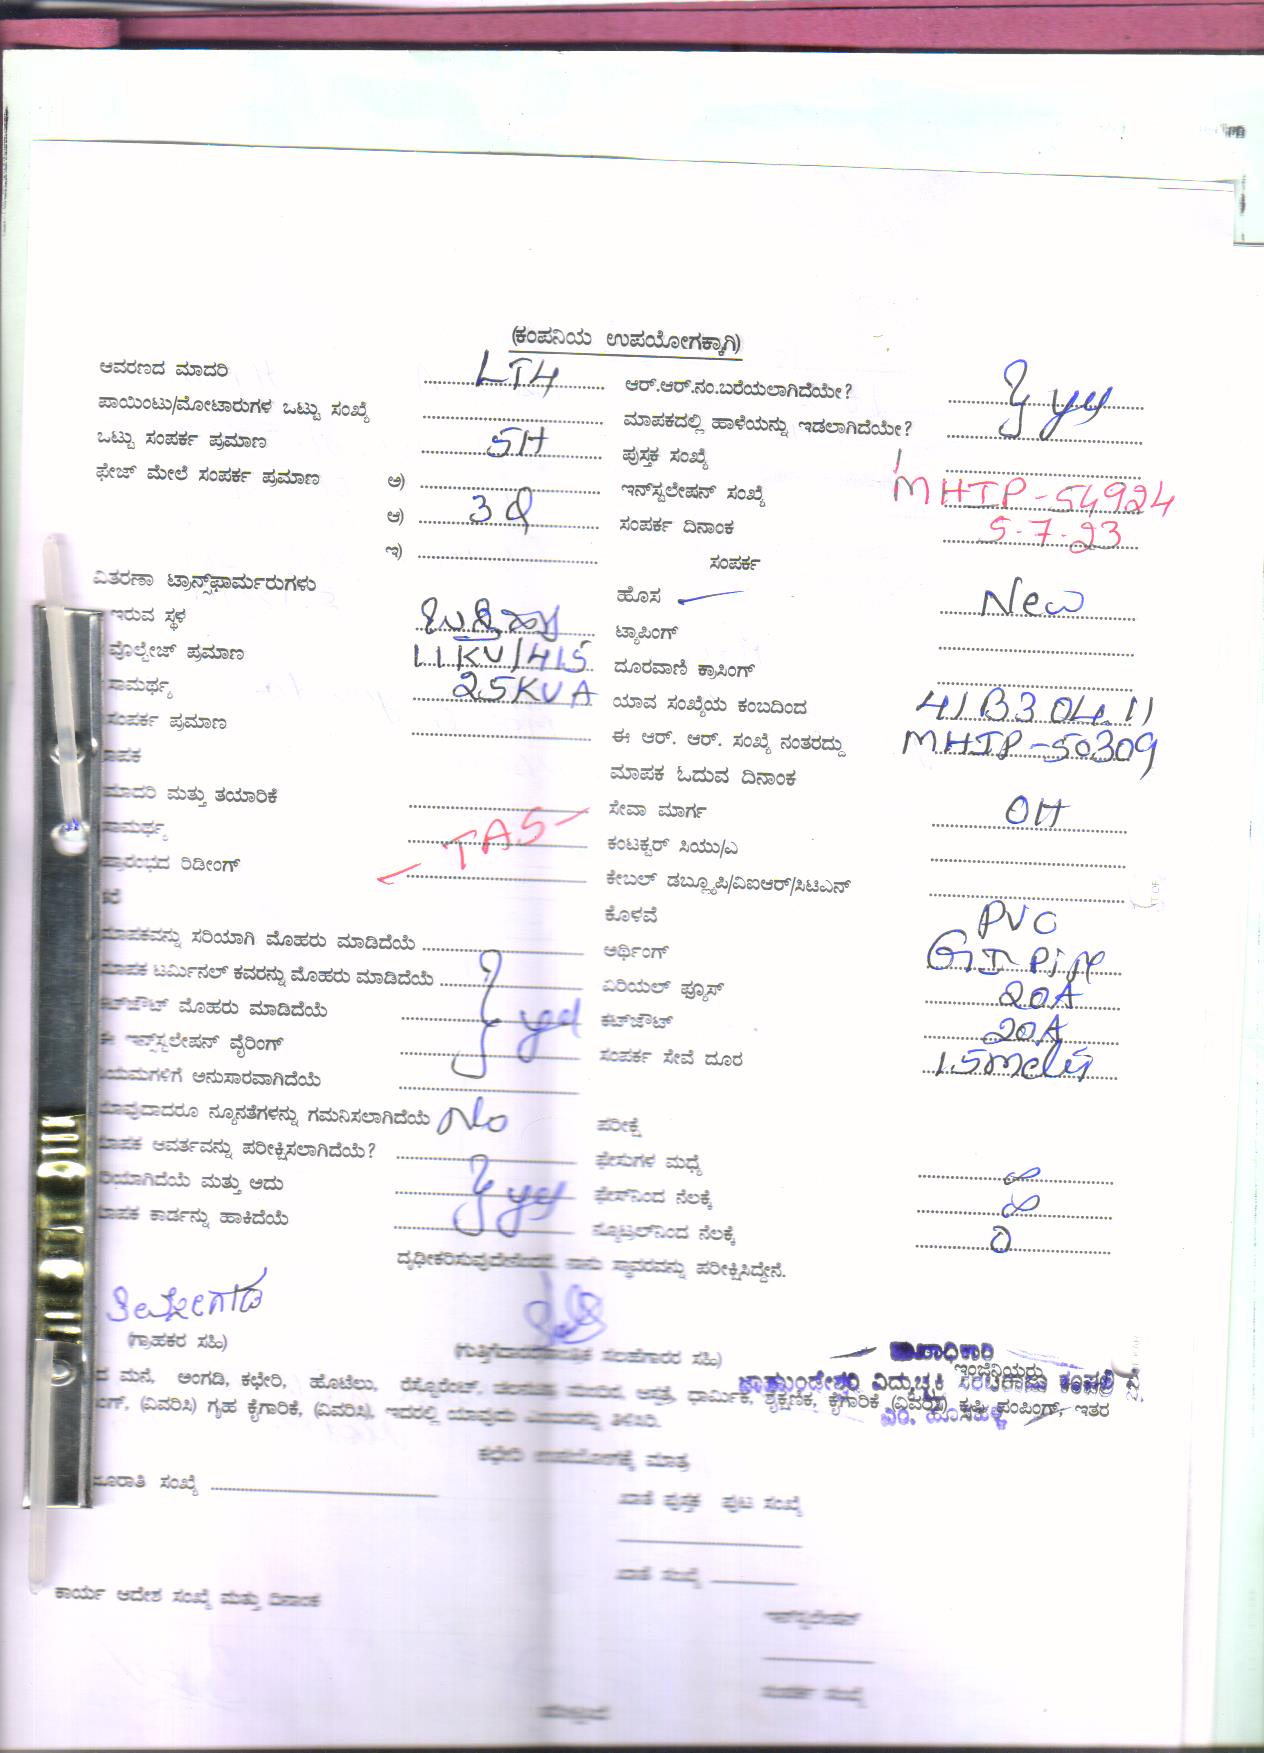 (ಕಂಪನಿಯ ಉಪಯೋಗಕ್ಕಾಗಿ)
ಆವರಣದ ಮಾದರಿ LT4 ಆರ್.ಆರ್.ನಂ.ಬರೆಯಲಾಗಿದೆಯೇ?
ಪಾಯಿಂಟು/ಮೋಟಾರುಗಳ ಒಟ್ಟು ಸಂಖ್ಯೆ ಮಾಪಕದಲ್ಲಿ ಹಾಳೆಯನ್ನು ಇಡಲಾಗಿದೆಯೇ? yes
ಒಟ್ಟು ಸಂಪರ್ಕ ಪ್ರಮಾಣ 5H ಪುಸ್ತಕ ಸಂಖ್ಯೆ
ಫೇಜ್ ಮೇಲೆ ಸಂಪರ್ಕ ಪ್ರಮಾಣ ಅ) ಇನ್‌ಸ್ಟಲೇಷನ್ ಸಂಖ್ಯೆ MHIP-54924
ಆ) 3 ಸಂಪರ್ಕ ದಿನಾಂಕ 5-7-23
ಇ) ಸಂಪರ್ಕ
ವಿತರಣಾ ಟ್ರಾನ್ಸ್‌ಫಾರ್ಮರುಗಳು ಹೊಸ New
ಇರುವ ಸ್ಥಳ ಟ್ಯಾಪಿಂಗ್
ವೊಲ್ಟೇಜ್ ಪ್ರಮಾಣ 11KV/415 ದೂರವಾಣಿ ಕ್ರಾಸಿಂಗ್
ಸಾಮರ್ಥ್ಯ 25KVA ಯಾವ ಸಂಖ್ಯೆಯ ಕಂಬದಿಂದ 41B3 04.11
ಸಂಪರ್ಕ ಪ್ರಮಾಣ ಈ ಆರ್. ಆರ್. ಸಂಖ್ಯೆ ನಂತರದ್ದು MHIP-50309
ಾಪಕ ಮಾಪಕ ಓದುವ ದಿನಾಂಕ
ಮಾದರಿ ಮತ್ತು ತಯಾರಿಕೆ ಸೇವಾ ಮಾರ್ಗ OH
ಸಾಮರ್ಥ್ಯ TAS ಕಂಟಕ್ಟರ್ ಸಿಯು/ಎ
ಪ್ರಾರಂಭದ ರಿಡೀಂಗ್ ಕೇಬಲ್ ಡಬ್ಲ್ಯೂಪಿ/ವಿಐಆರ್/ಸಿಟಿಎನ್
ಕೊಳವೆ PVC
ಮಾಪಕವನ್ನು ಸರಿಯಾಗಿ ಮೊಹರು ಮಾಡಿದೆಯೆ ಅರ್ಥಿಂಗ್ GI Pipe
ಮಾಪಕ ಟರ್ಮಿನಲ್ ಕವರನ್ನು ಮೊಹರು ಮಾಡಿದೆಯೆ ಏರಿಯಲ್ ಫ್ಯೂಸ್ 20A
ಕಟ್‌ಔಟ್ ಮೊಹರು ಮಾಡಿದೆಯೆ ಕಟ್‌ಔಟ್ 20A
ಈ ಇನ್ಸ್‌ಸ್ಟಲೇಷನ್ ವೈರಿಂಗ್ ಸಂಪರ್ಕ ಸೇವೆ ದೂರ
ನಿಯಮಗಳಿಗೆ ಅನುಸಾರವಾಗಿದೆಯೆ
ಯಾವುದಾದರೂ ನ್ಯೂನತೆಗಳನ್ನು ಗಮನಿಸಲಾಗಿದೆಯೆ No ಪರೀಕ್ಷೆ
ಮಾಪಕ ಆವರ್ತವನ್ನು ಪರೀಕ್ಷಿಸಲಾಗಿದೆಯೆ? ಫೇಸುಗಳ ಮಧ್ಯೆ ∞
ರಿಯಾಗಿದೆಯೆ ಮತ್ತು ಅದು yes ಫೇಸ್‌ನಿಂದ ನೆಲಕ್ಕೆ ∞
ಮಾಪಕ ಕಾರ್ಡನ್ನು ಹಾಕಿದೆಯೆ ನ್ಯೂಟ್ರಲ್‌ನಿಂದ ನೆಲಕ್ಕೆ 0
ದೃಢೀಕರಿಸುವುದೇನೆಂದರೆ, ನಾನು ಸ್ಥಾವರವನ್ನು ಪರೀಕ್ಷಿಸಿದ್ದೇನೆ.
(ಗ್ರಾಹಕರ ಸಹಿ) ಸಲಹೆಗಾರರ ಸಹಿ) ಇಂಜಿನಿಯರು
ಚಾಮುಂಡೇಶ್ವರಿ ವಿದ್ಯುಚ್ಛಕ್ತಿ ಸರಬರಾಜು ಕಂಪನಿ
ದ ಮನೆ, ಅಂಗಡಿ, ಕಛೇರಿ, ಹೊಟೆಲು, ಧಾರ್ಮಿಕ, ಶೈಕ್ಷಣಿಕ, ಕೈಗಾರಿಕೆ (ವಿವರಿಸಿ) ಕೃಷಿ ಪಂಪಿಂಗ್, ಇತರ
(ವಿವರಿಸಿ) ಗೃಹ ಕೈಗಾರಿಕೆ, (ವಿವರಿಸಿ), ಇದರಲ್ಲಿ ತಿಳಿಸಿರಿ.
ಕಛೇರಿ ಉಪಯೋಗಕ್ಕೆ ಮಾತ್ರ
ಸಂಖ್ಯೆ ಖಾತೆ ಪುಸ್ತಕ ಪುಟ ಸಂಖ್ಯೆ
ಖಾತೆ ಸಂಖ್ಯೆ
ಕಾರ್ಯ ಆದೇಶ ಸಂಖ್ಯೆ ಮತ್ತು ದಿನಾಂಕ
ಸಂಪರ್ಕ ಸಂಖ್ಯೆ